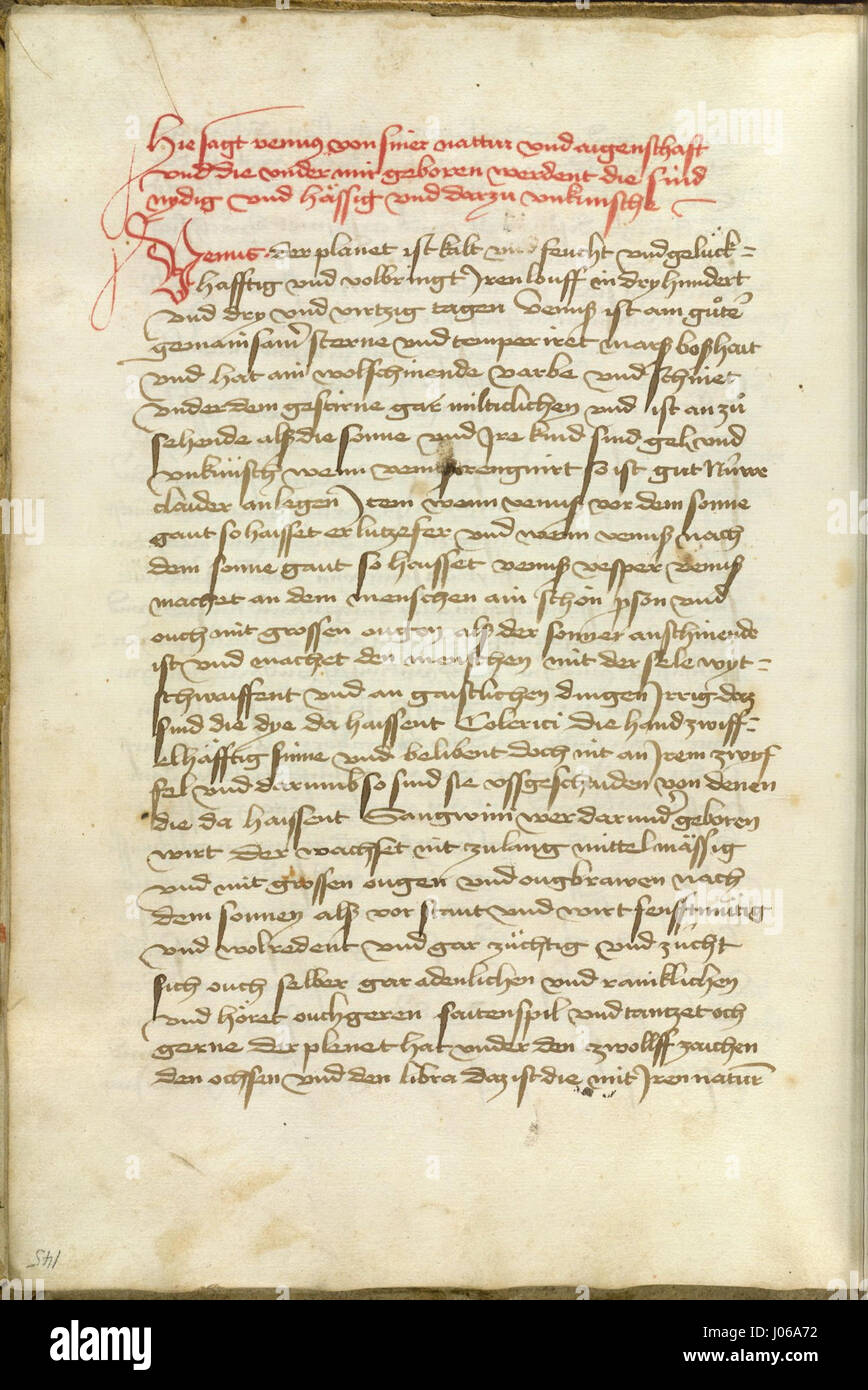 Hie sagt venus von siner nattur vnd aigenschaft
vnd die vnder mir geboren werdent die sind
nydig vnd hässig vnd darzu vnkünsche
Venus der planet ist kalt vnd feucht vnd gelück=
hafftig vnd volbringt Jren louff in dry hundert
vnd dry vnd virtzig tagen Venuß ist ain gůter
gemainsamer sterne vnd temperiret marß boßhait
vnd hat ain wolschinende varbe vnd schinet
vnder dem gestirne gar milticlichen vnd ist an zů
sehende alß die sonne vnd Jre kind sind gel vnd
vnküüsch wenn venuß rengnirt so ist gut Nüwe
claider an legen Jtem wenn venuß vor dem sonne
gaut so haisset er lutzefer vnd wenn venuß nach
dem sonne gaut so haisset venuß vesper venuß
machet an dem menschen ain schön pson vnd
ouch mit grossen ougen alß der sonnen anschinende
ist vnd machet den menschen mit der sele wyt=
schwaiffent vnd an gaistlichen dingen Jrrig daz
sind die dye da haissent Colerici die hand zwiff=
elhäfftig sinne vnd belibent doch nit an Jrem zwyf
fel vnd darumb so sind sie vssgeschaiden von denen
die da haissent Sangwini wer darund geboren
wirt der wachset nit zu lang mittelmässig
vnd mit grossen ougen vnd ougbrawen nach
dem sonnen alß vor staut vnd wirt senftmütig
vnd wolredent vnd gar züchtig vnd zücht
sich ouch selber gar adenlichen vnd rainklichen
vnd höret ouch geren saitenspil vnd tantzet och
gerne der plenet hat vnder den zwollff zaichen
den ochsen vnd den libra daz ist die mit Jren natur
145
alamy
Image ID: J06A72
www.alamy.com